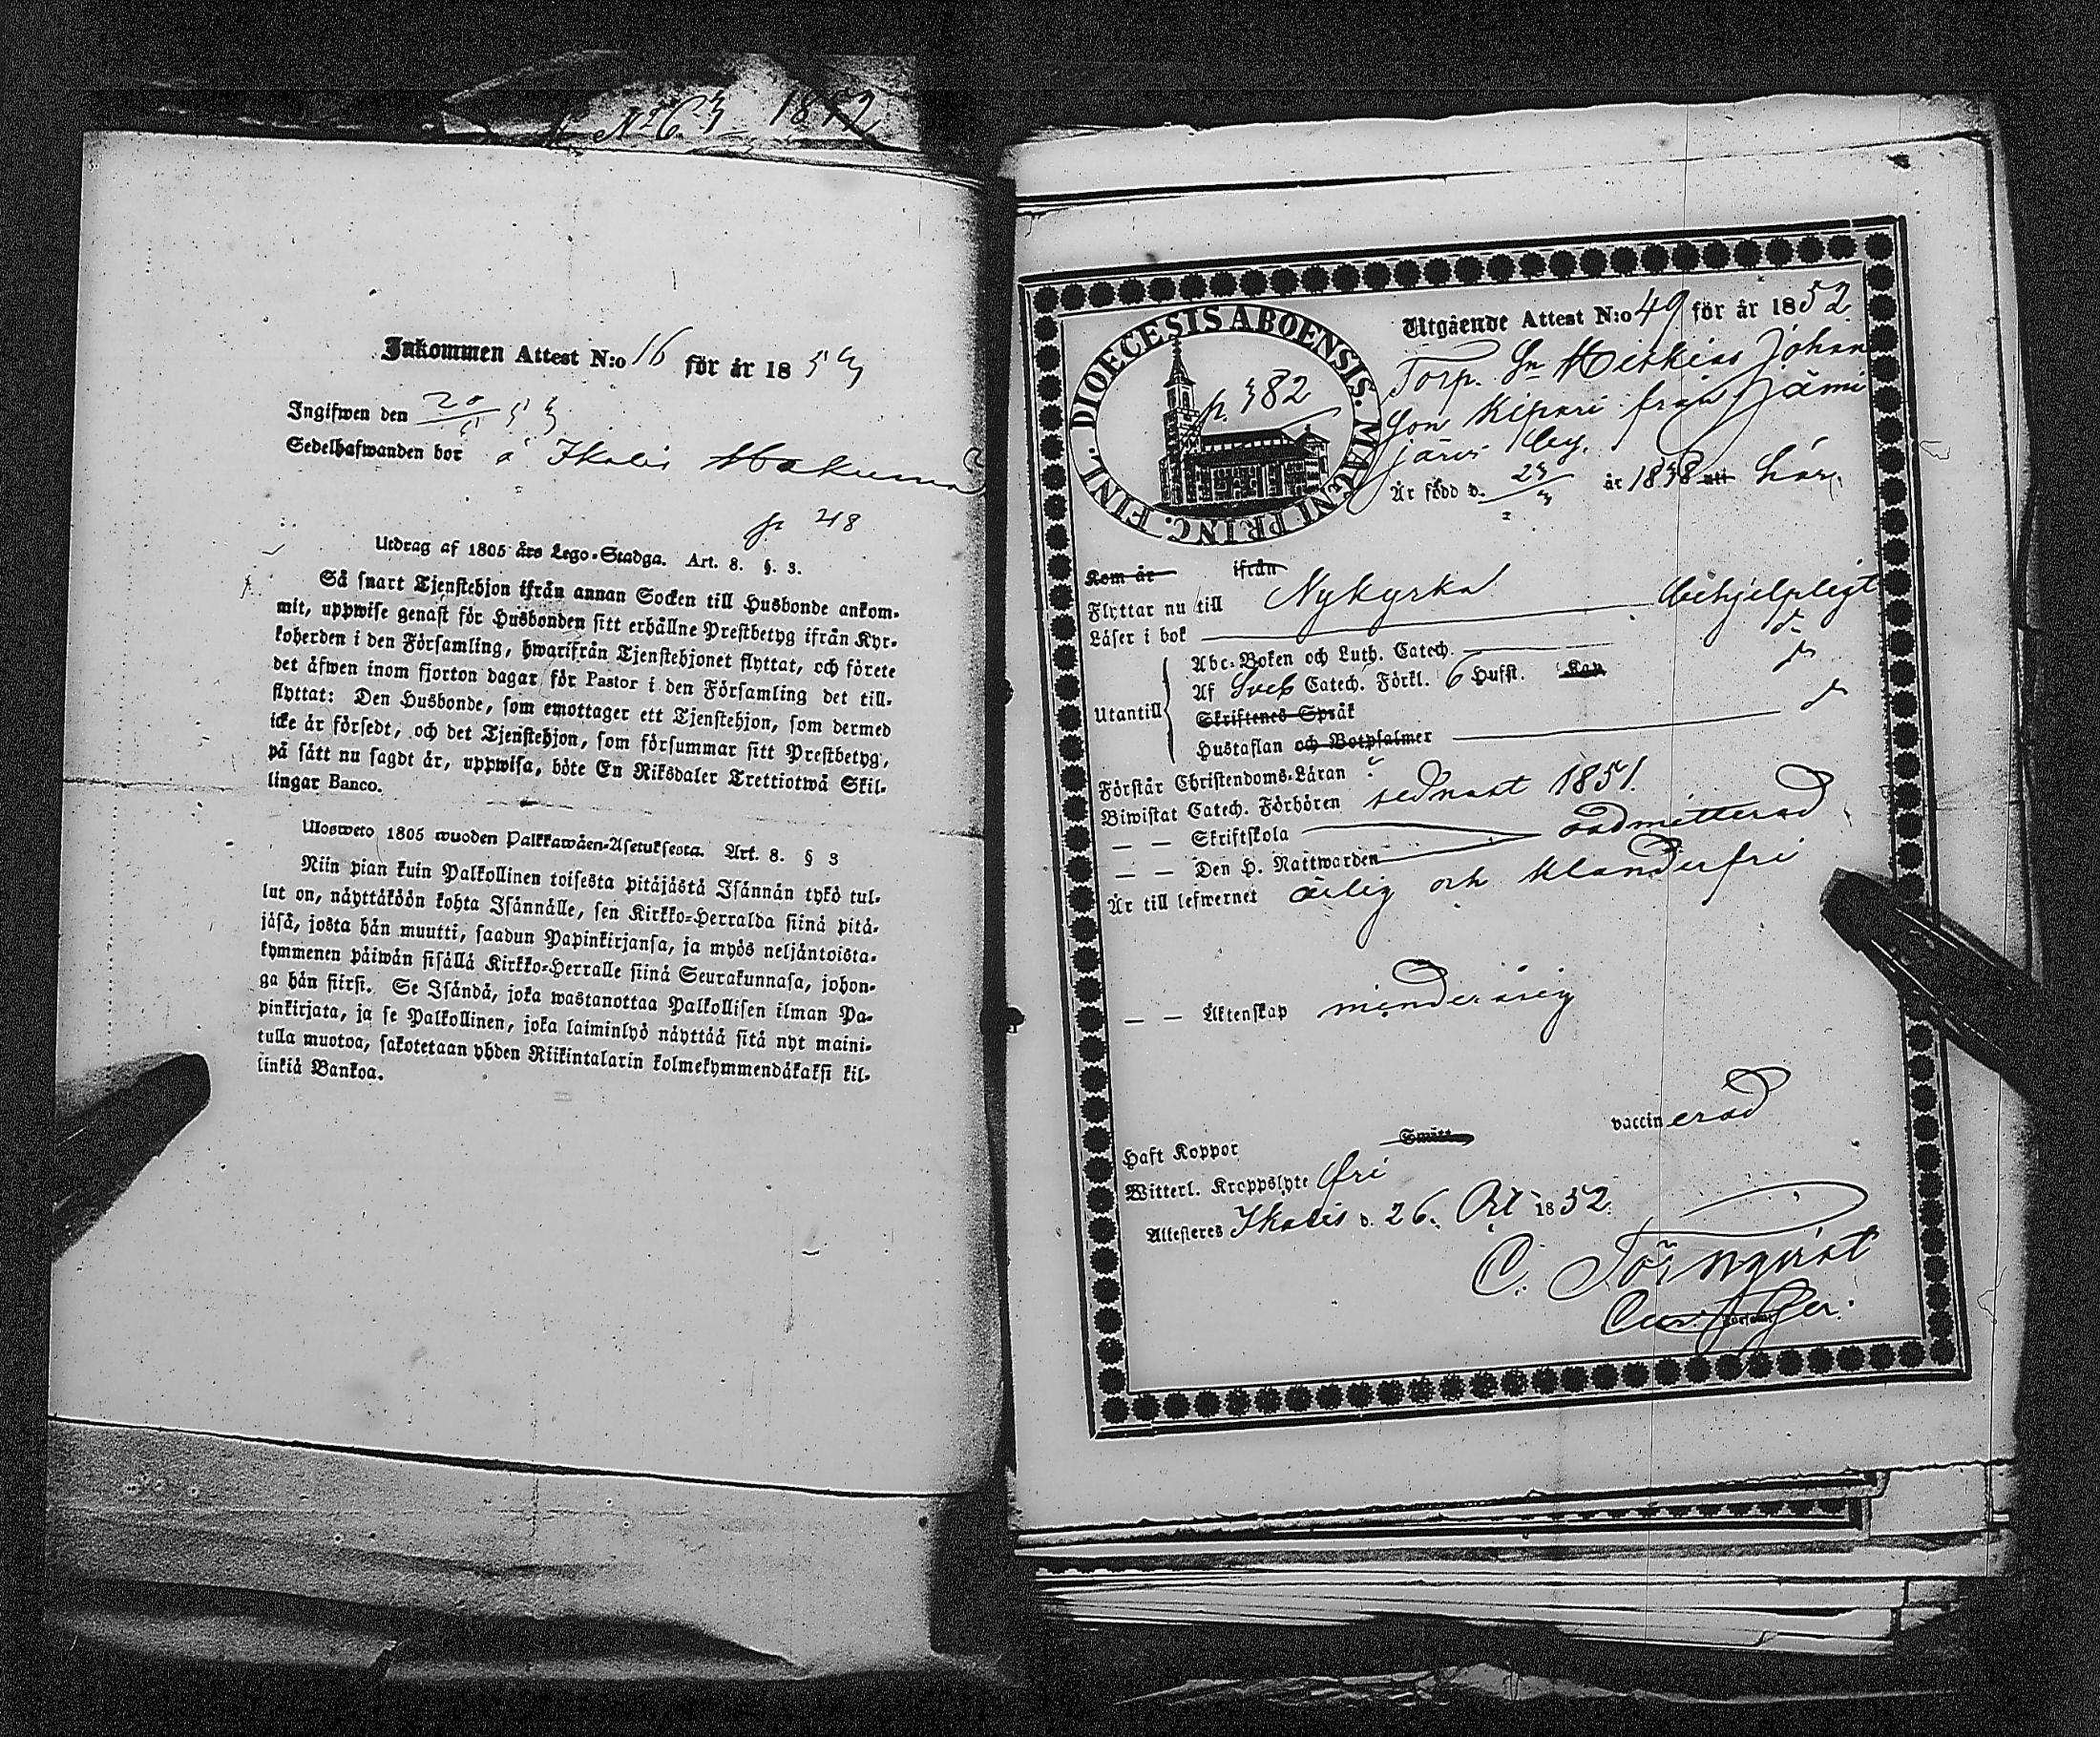 No 63 1852
Inkommen Attest N:o 16 för år 1853
Ingifwen den 20/5 53
Sedelhafwanden bor å Ikalis
p. 48
Utdrag af 1805 års Lego-Stadga. Art. 8. §. 3.
Så snart Tjenstehjon ifrån annan Socken till Husbonde ankom-
mit, uppwise genast för Husbonden sitt erhållne Prestbetyg ifrån Kyr-
koherden i den Församling, hwarifrån Tjenstehjonet flyttat, och förete
det äfwen inom fjorton dagar för Pastor i den Församling det till-
flyttat: Den Husbonde, som emottager ett Tjenstehjon, som dermed
icke är försedt, och det Tjenstehjon, som försummar sitt Prestbetyg,
på sätt nu sagdt är, uppwisa, böte En Riksdaler Trettiotwå Skil-
lingar Banco.
Ulosweto 1805 wuoden Palkkawäen-Asetuksesta. Art. 8. § 3
Niin pian kuin Palkollinen toisesta pitäjästä Isännän tykö tul-
lut on, näyttäköön kohta Isännälle, sen Kirkko-Herralda siinä pitä-
jäsä, josta hän muutti, saadun Papinkirjansa, ja myös neljäntoista-
kymmenen päiwän sisällä Kirkko-Herralle siinä Seurakunnasa, johon-
ga hän siirsi. Se Isändä, joka wastanottaa Palkollisen ilman Pa-
pinkirjata, ja se Palkollinen, joka laiminlyö näyttää sitä nyt maini-
tulla muotoa, sakotetaan yhden Riikintalarin kolmekymmendäkaksi kil-
linkiä Bankoa.
DIOECESIS ABOENSIS. MAGNI PRINC. FINL.
p. 382
Utgående Attest N:o 49 för år 1852.
Torp. Sn Johan
son från Jämi
järvi by.
Är född d. 23/3 år 1838 här.
Kom år ifrån
Flyttar nu till Nykyrka
Läser i bok behjelpligt
Utantill
Abc-Boken och Luth. Catech.
Af Sveb Catech. Förkl. 6 Hufst. Kap
Skriftenes Språk
Hustaflan och Botpsalmer
Förstår Christendoms-Läran
Biwistat Catech. Förhören sednast 1851.
— — Skriftskola
— — Den H. Nattwarden oadmitterad
Är till lefwernet ärlig och klanderfri
— — Äktenskap minderårig
Haft Koppor vaccinerad
Witterl. Kroppslyte fri
Attesteres Ikalis d. 26. Oct 1852.
C. Törnqvist